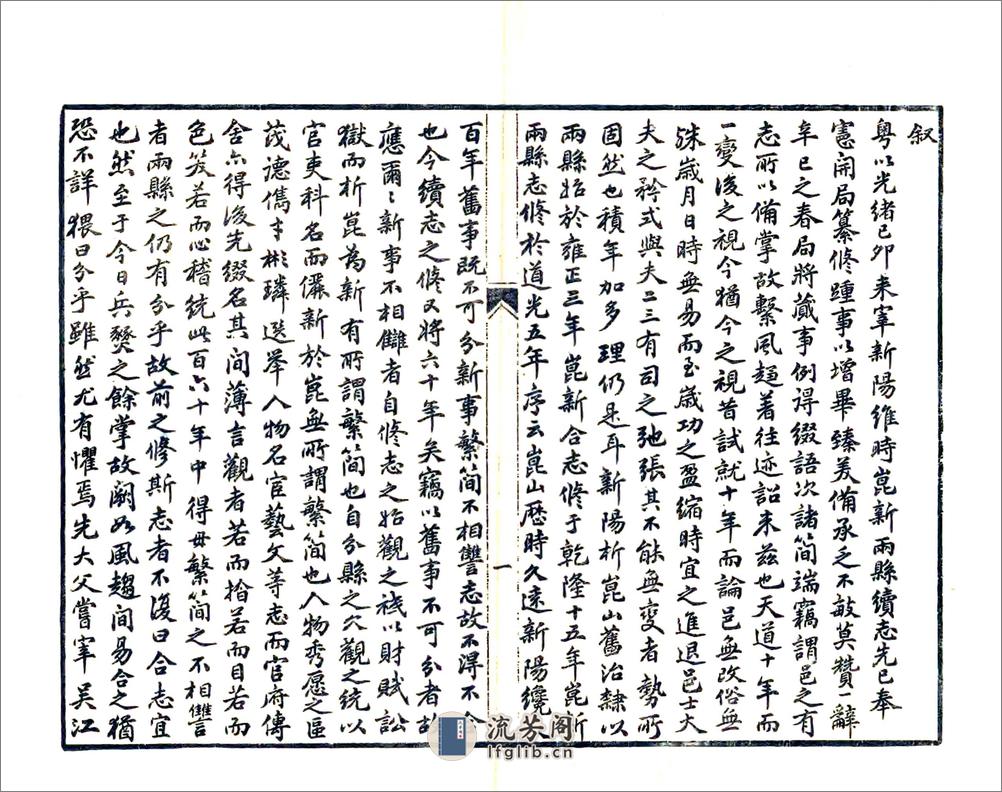 叙
粵以光緒己卯來宰新陽維時崑新兩縣續志先已奉
憲開局纂修踵事以增畢臻美備承之不敏莫贊一辭
辛巳之春局將蕆事例得綴語次諸簡端竊謂邑之有
志所以備掌故繫風趨著往迹詔來茲也天道十年而
一變後之視今猶今之視昔試就十年而論邑無改俗無
殊歲月日時無易而至歲功之盈縮時宜之進退邑士大
夫之矜式與夫二三有司之弛張其不能無變者勢所
固然也積年加多理仍是耳新陽析崑山舊治隸以
兩縣始於雍正三年崑新合志修于乾隆十五年崑新
兩縣志修於道光五年序云崑山歷時久遠新陽纔
一
百年舊事既不可分新事繁簡不相讐志故不得不合
也今續志之修又將六十年矣竊以舊事不可分者故
應爾爾新事不相讎者自修志之始觀之祗以財賦訟
獄而析崑為新有所謂繁簡也自分縣之穴觀之統以
官吏科名而儷新於崑無所謂繁簡也人物秀愿之區
茂德儁才彬璘選舉人物名宦藝文等志而官府傳
舍亦得後先綴名其間薄言觀者若而拾若而目若而
色笑若而心稽統此百六十年中得毋繁簡之不相讐
者兩縣之仍有分乎故前之修斯志者不復曰合志宜
也然至于今日兵燹之餘掌故闕如風趨間易合之猶
恐不詳猥曰分乎雖然尤有懼焉先大父嘗宰吳江
流芳阁
lfglib.cn